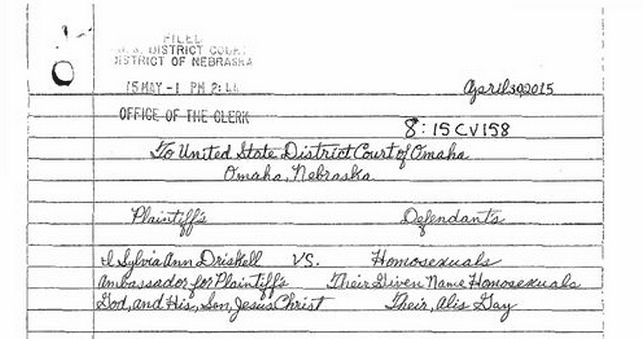 FILED
U.S. DISTRICT COURT
DISTRICT OF NEBRASKA
15 MAY -1 PM 2:
OFFICE OF THE CLERK
April 30 2015
8:15CV158
To United State District Court of Omaha
Omaha, Nebraska
Plaintiff's Defendants
I Sylvia Ann Driskell VS. Homosexuals
Ambassador for Plaintiff's Their Given Name Homosexuals
God, and His, Son, Jesus Christ Their, Alis Gay